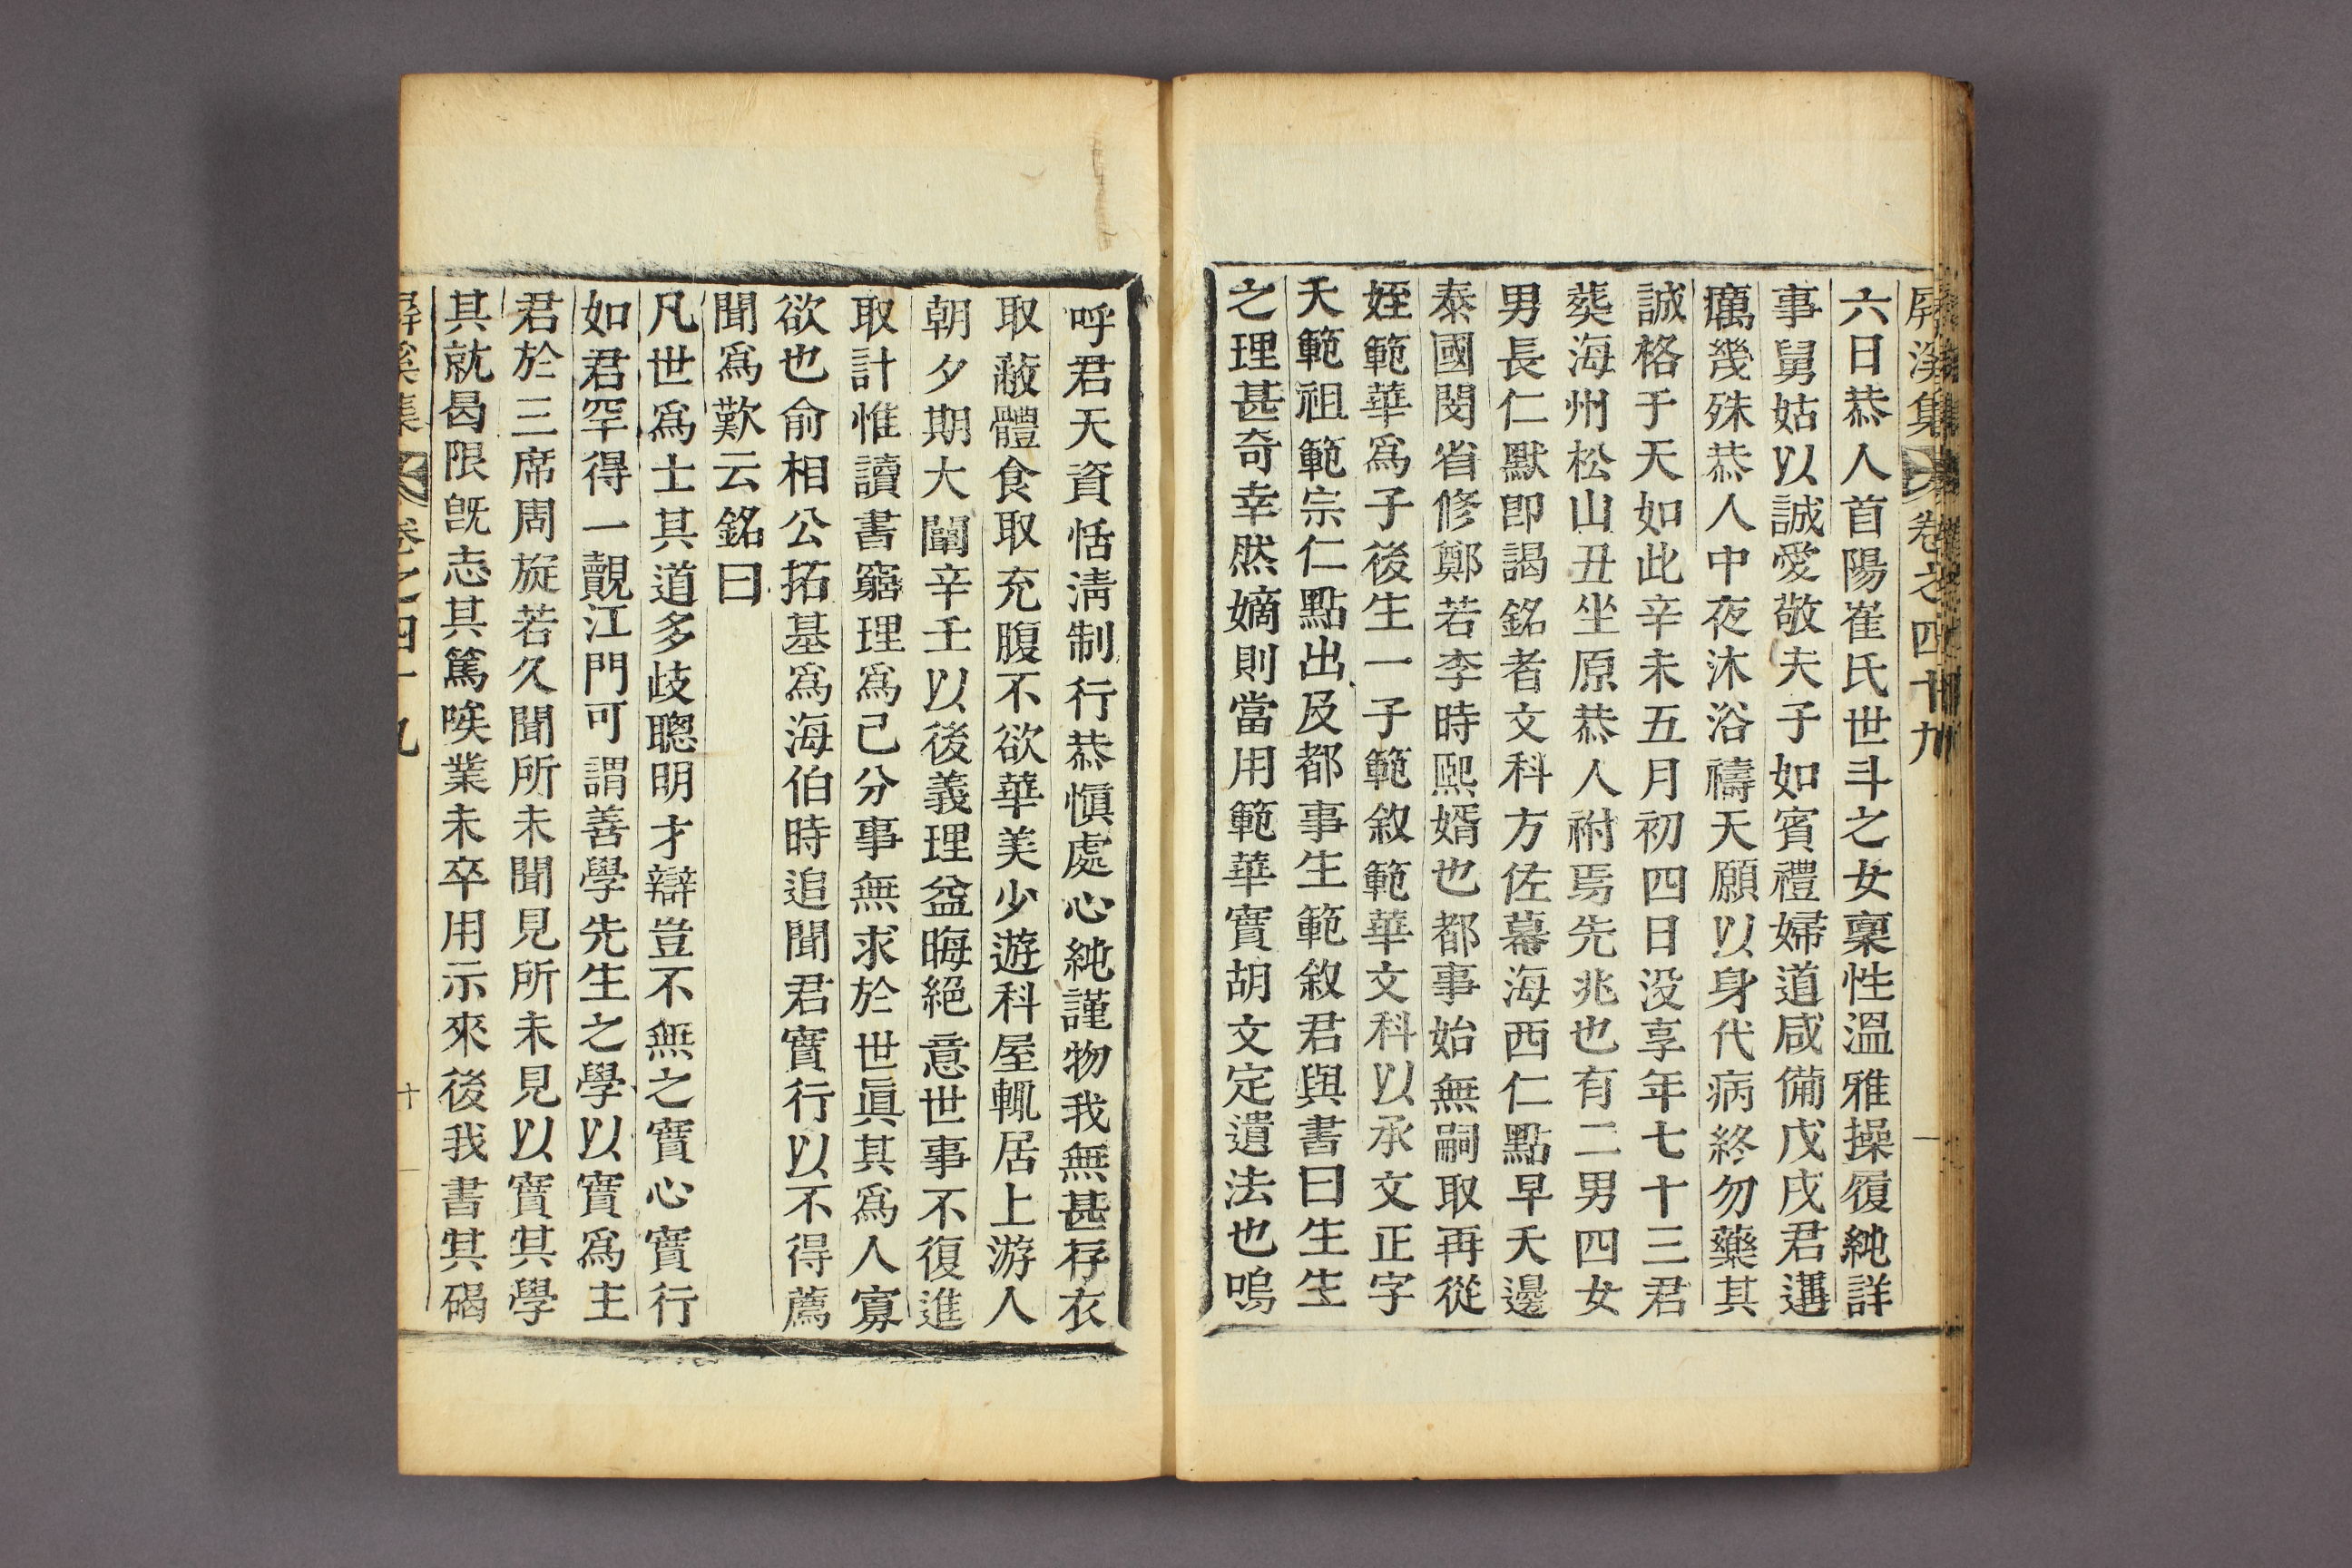 屛溪集 卷之四十九
六日恭人首陽崔氏世斗之女稟性溫雅操履純詳
事舅姑以誠愛敬夫子如賓禮婦道咸備戊戌君遘
癘幾殊恭人中夜沐浴禱天願以身代病終勿藥其
誠格于天如此辛未五月初四日没享年七十三君
葬海州松山丑坐原恭人祔焉先兆也有二男四女
男長仁默卽謁銘者文科方佐幕海西仁點早夭邊
泰國閔省修鄭若李時熙婿也都事始無嗣取再從
姪範華爲子後生一子範敘範華文科以承文正字
夭範祖範宗仁點出及都事生範敘君與書曰生生
之理甚奇幸然嫡則當用範華實胡文定遺法也嗚
呼君天資恬淸制行恭愼處心純謹物我無甚存衣
取蔽體食取充腹不欲華美少遊科屋輒居上游人
朝夕期大闡辛壬以後義理益晦絕意世事不復進
取計惟讀書窮理爲己分事無求於世眞其爲人寡
欲也俞相公拓基爲海伯時追聞君實行以不得薦
聞爲歎云銘曰
凡世爲士其道多歧聰明才辯豈不無之實心實行
如君罕得一覿江門可謂善學先生之學以實爲主
君於三席周旋若久聞所未聞見所未見以實其學
其就曷限旣志其篤唉業未卒用示來後我書其碣
屛溪集 卷之四十九 十